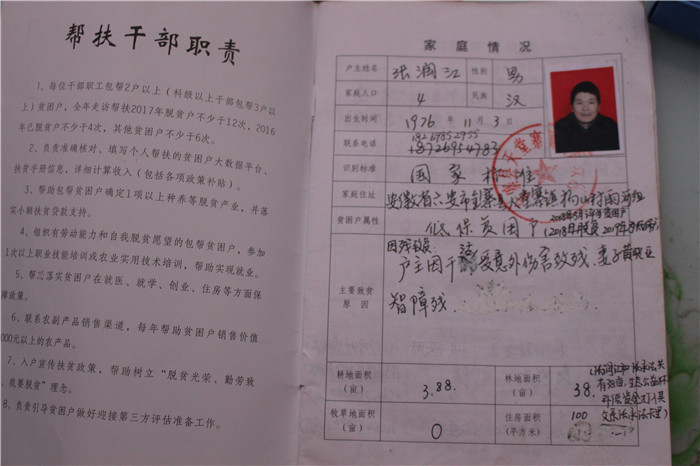 帮扶干部职责
1、每位干部职工包帮2户以上(科级以上干部包帮3户以
上)贫困户,全年走访帮扶2017年脱贫户不少于12次,2016
年已脱贫户不少于4次,其他贫困户不少于6次。
2、负责准确核对、填写个人帮扶的贫困户大数据平台、
扶贫手册信息,详细计算收入(包括各项政策补贴)。
3、帮助包帮贫困户确定1项以上种养等脱贫产业,并落
实小额扶贫贷款支持。
4、组织有劳动能力和自我脱贫愿望的包帮贫困户,参加
1次以上职业技能培训或农业实用技术培训,帮助实现就业。
5、帮忙落实贫困户在就医、就学、创业、住房等方面保
障政策。
6、联系农副产品销售渠道,每年帮助贫困户销售价值
000元以上的农产品。
7、入户宣传扶贫政策,帮助树立“脱贫光荣、勤劳致
,我要脱贫”理念。
8、负责引导贫困户做好迎接第三方评估准备工作。
家庭情况
户主姓名 张润江 性别 男
家庭人口 4 民族 汉
出生时间 1976年11月3日
联系电话 18269852955
18726954783
识别标准 国家标准
家庭住址 安徽省六安市金寨县天堂寨镇
贫困户属性 低保贫困户
因残致贫:
主要致贫
原因
户主因 受意外伤害致残,妻子黄
智障残.
耕地面积
(亩)
3.88.
林地面积
(亩)
38.
牧草地面积
(亩)
0
住房面积
(平方米)
100